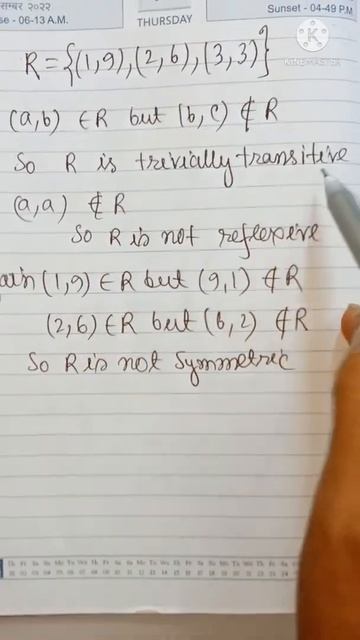 सम्बर २०२२
se - 06-13 A.M.
THURSDAY
Sunset - 04-49 P.M
KINEMASTER
R = {(1,9),(2,6),(3,3)}
(a,b) ∈ R but (b,c) ∉ R
So R is trivially transitive
(a,a) ∉ R
So R is not reflexive
ain (1,9) ∈ R but (9,1) ∉ R
(2,6) ∈ R but (6,2) ∉ R
So R is not Symmetric